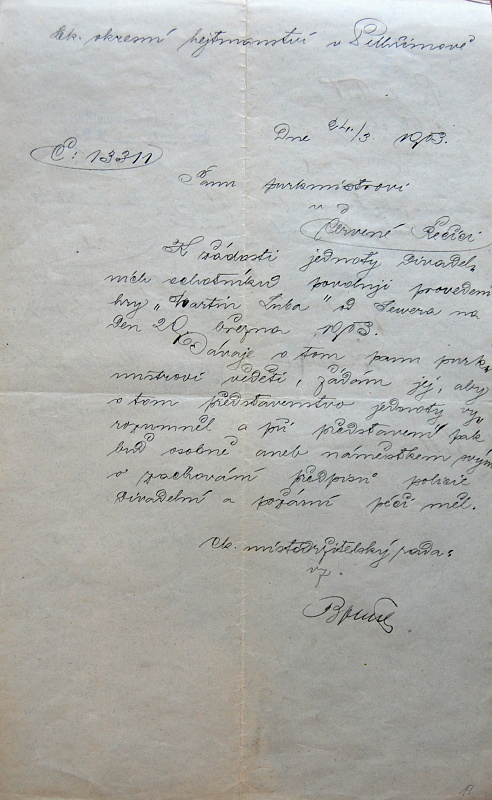 Ck. okresní hejtmanství v Pelhřimově
Dne 24./3. 1913.
Č: 13311
Panu purkmistrovi
v
Červené Řečici
K žádosti jednoty divadel-
ních ochotníků povoluji provedení
hry „Martin Luba" od Sewera na
den března 1913.
Dávaje o tom panu purk-
mistrovi věděti, žádám jej, aby
o tom představenstvo jednoty vy-
rozuměl a při představení pak
buď osobně aneb náměstkem svým
o zachování předpisů policie
divadelní a požární péči měl.
Ck. místodržitelský rada:
vz.